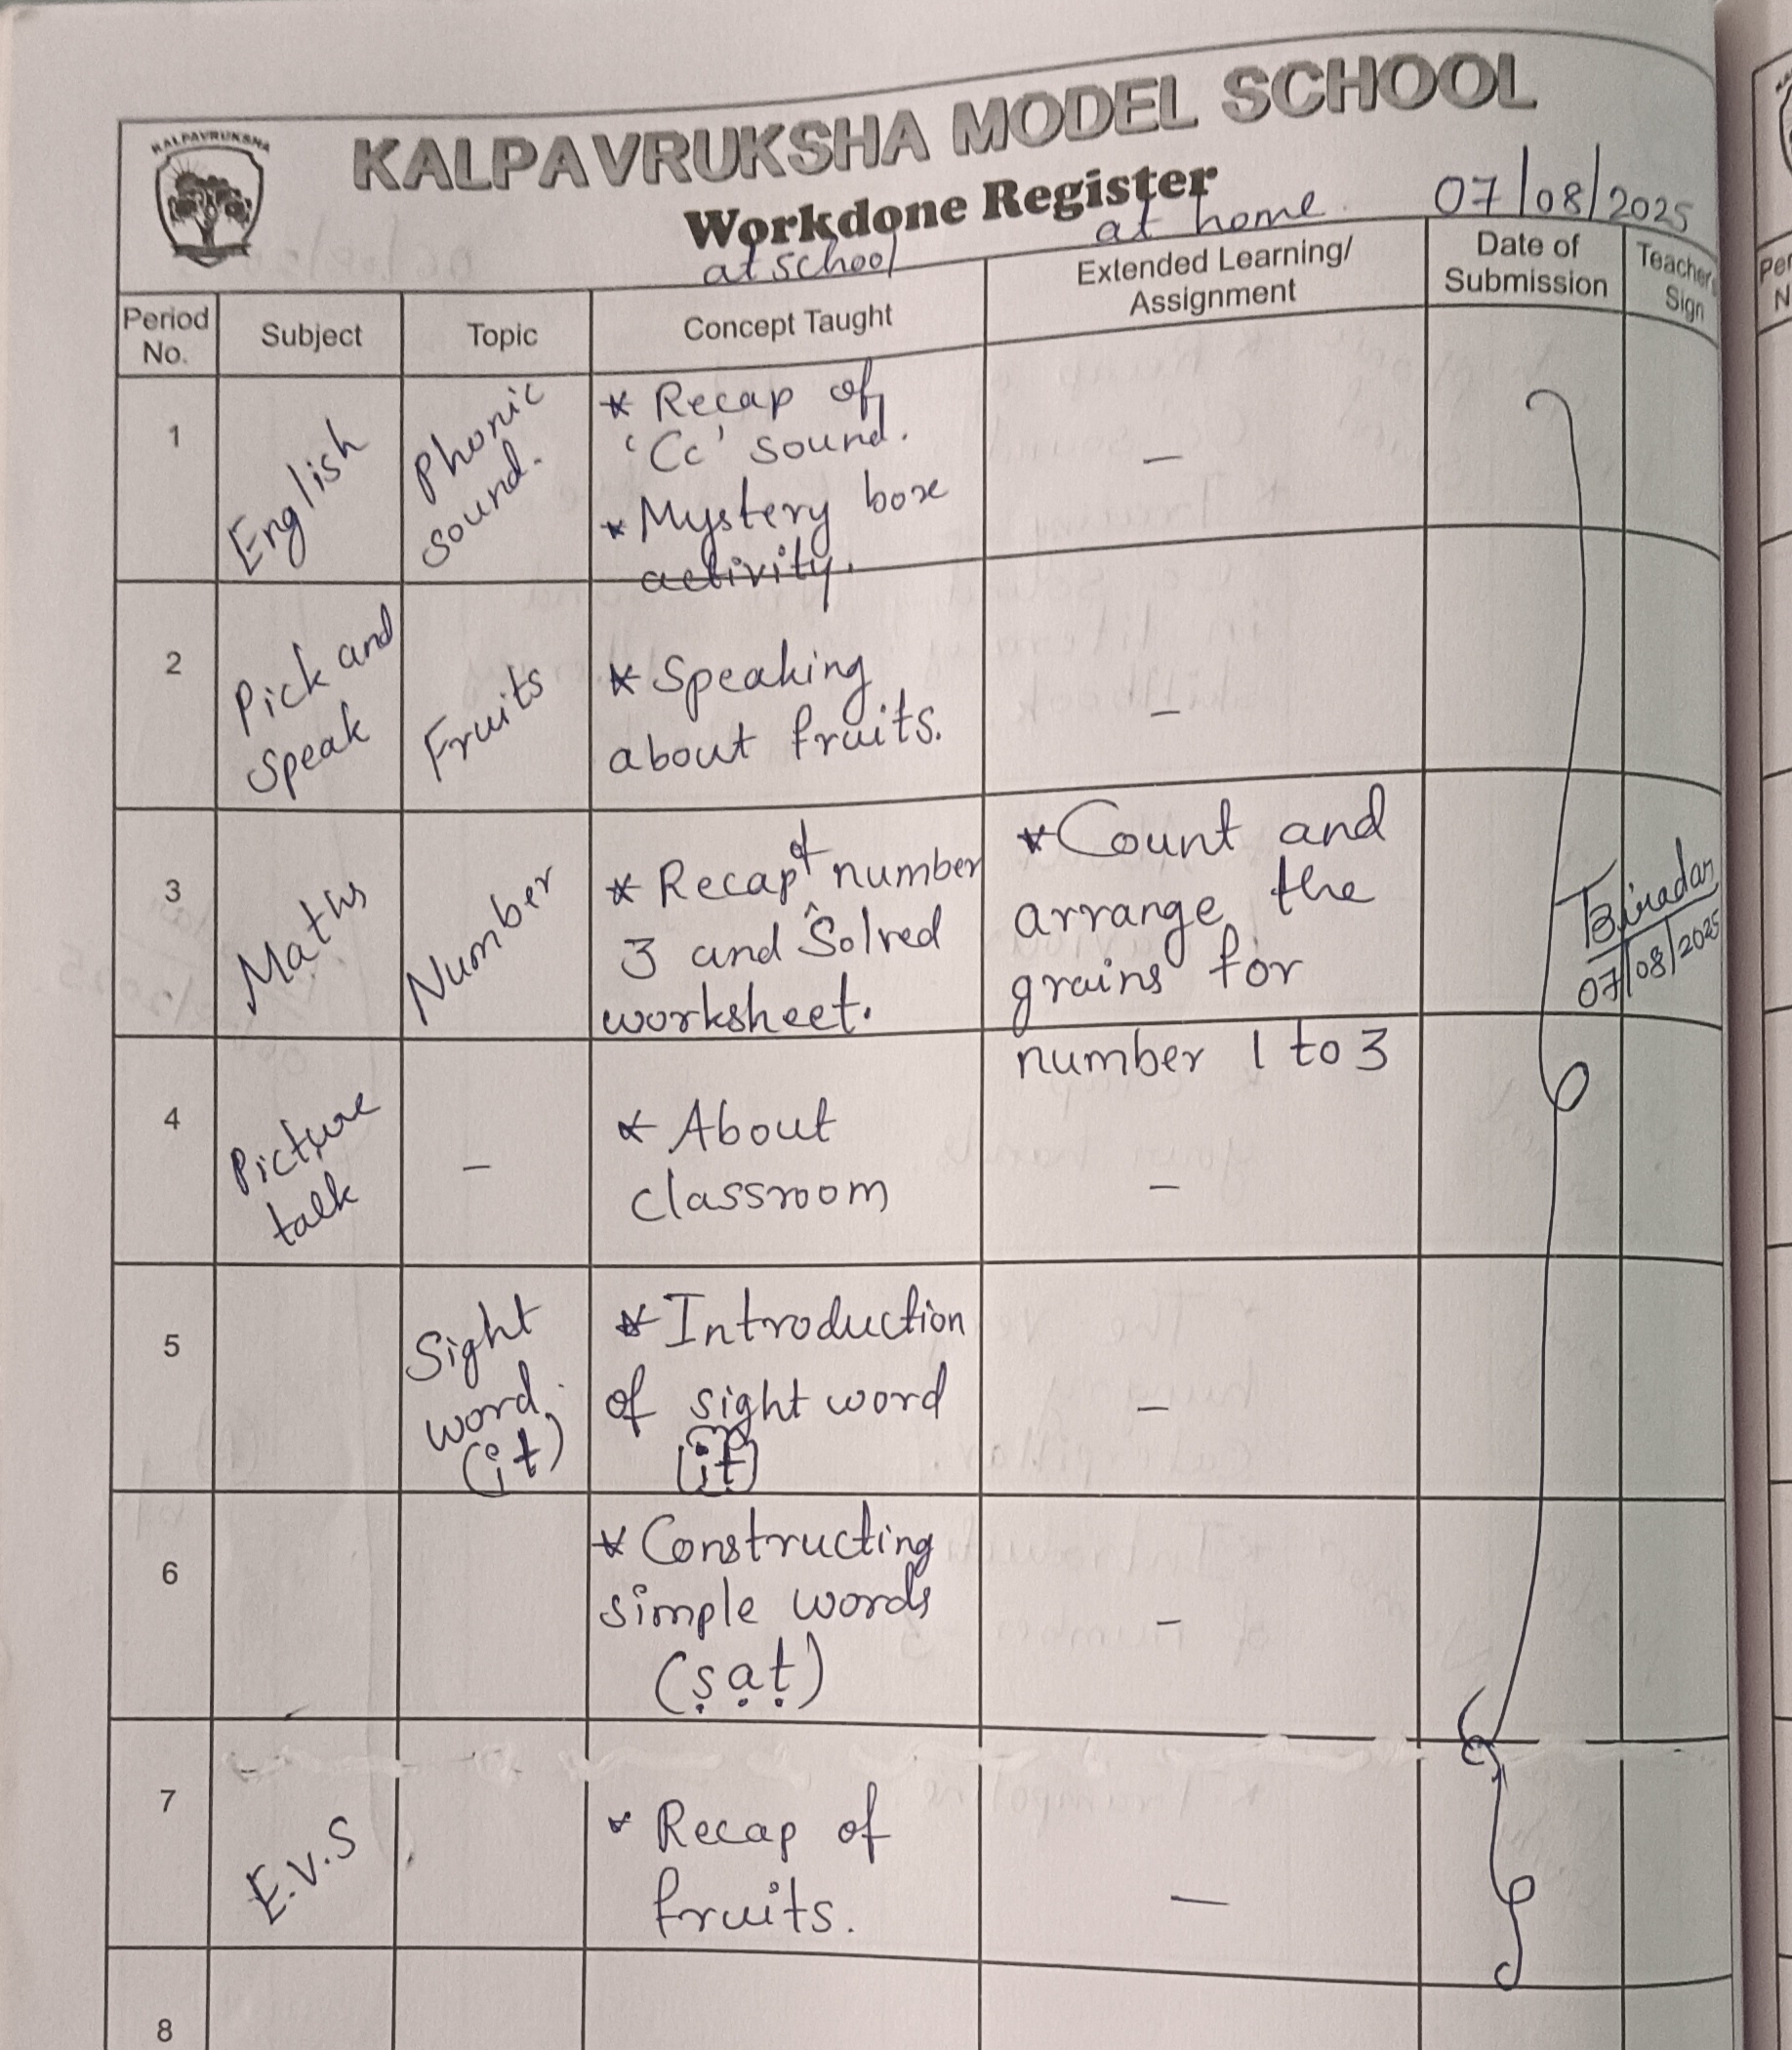 KALPAVRUKSHA
KALPAVRUKSHA MODEL SCHOOL
Workdone Register
07/08/2025
at school
at home
Period No.
Subject
Topic
Concept Taught
Extended Learning/
Assignment
Date of
Submission
Teacher
Sign
1
English
Phonic
sound.
* Recap of
'Cc' sound.
* Mystery box
activity.
–
2
Pick and
speak
Fruits
* Speaking
about fruits.
–
3
Maths
Number
* Recap of number
3 and Solved
worksheet.
* Count and
arrange the
grains for
number 1 to 3
Biradar
07/08/2025
4
Picture
talk
–
* About
classroom
–
5
Sight
word.
(it)
* Introduction
of sight word
(it)
–
6
* Constructing
simple words
(sat)
–
7
E.V.S
* Recap of
fruits.
–
8